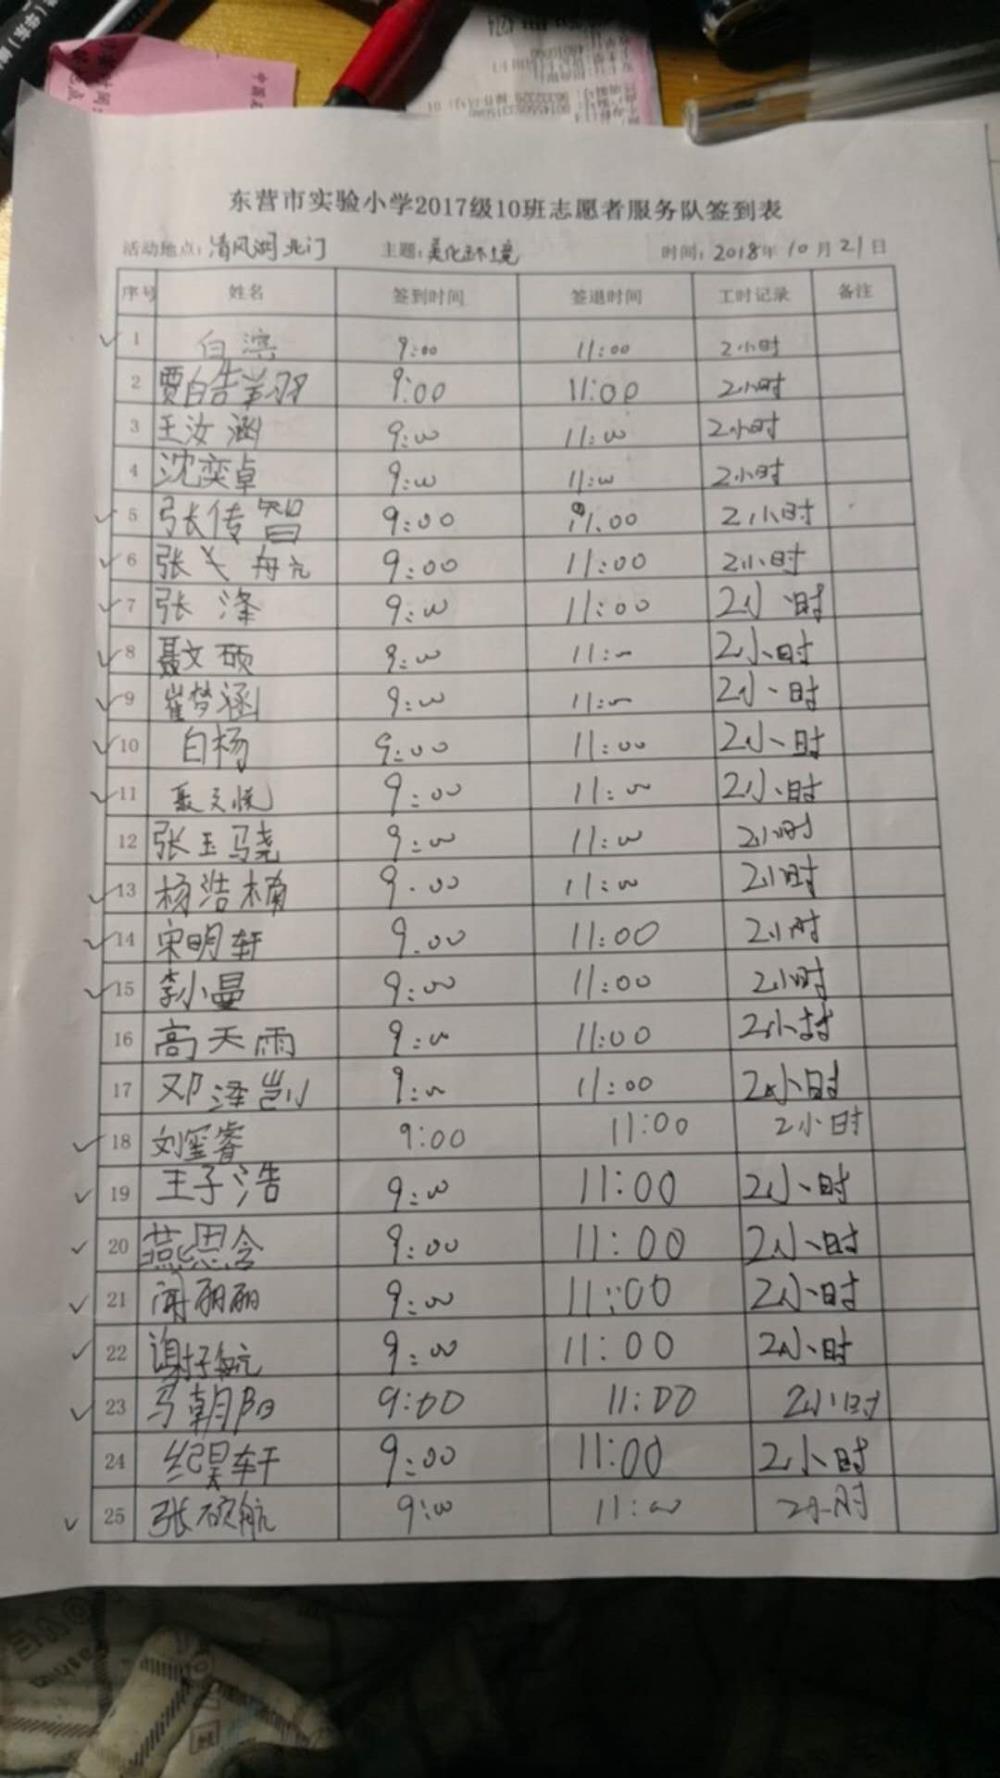 东营市实验小学2017级10班志愿者服务队签到表
活动地点：清风湖北门 主题：美化环境 时间：2018年10月21日
序号 姓名 签到时间 签退时间 工时记录 备注
1 白 9:00 11:00 2小时
2 贾皓羽 9:00 11:00 2小时
3 王汝涵 9:00 11:00 2小时
4 沈奕卓 9:00 11:00 2小时
5 张传智 9:00 11:00 2小时
6 张 航 9:00 11:00 2小时
7 张泽 9:00 11:00 2小时
8 聂文硕 9:00 11:00 2小时
9 崔梦涵 9:00 11:00 2小时
10 白杨 9:00 11:00 2小时
11 聂天悦 9:00 11:00 2小时
12 张玉骁 9:00 11:00 2小时
13 杨浩楠 9:00 11:00 2小时
14 宋明轩 9:00 11:00 2小时
15 李小曼 9:00 11:00 2小时
16 高天雨 9:00 11:00 2小时
17 邓泽凯 9:00 11:00 2小时
18 刘玺睿 9:00 11:00 2小时
19 王子浩 9:00 11:00 2小时
20 燕思含 9:00 11:00 2小时
21 闻丽丽 9:00 11:00 2小时
22 谢子航 9:00 11:00 2小时
23 马朝阳 9:00 11:00 2小时
24 纪昊轩 9:00 11:00 2小时
25 张硕航 9:00 11:00 2小时